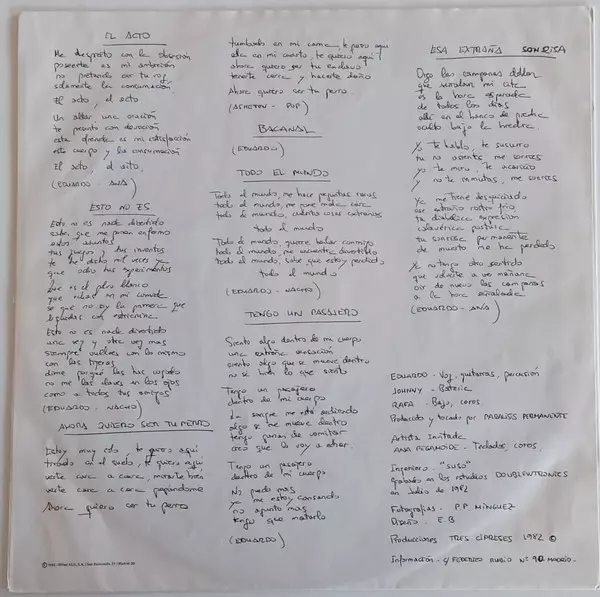 EL ACTO
Me despierto con la obsesión
poseerte es mi ambición
no pretendo oir tu voz
solamente la consumación
El acto, el acto
Un altar una oración
te presento con devoción
esta ofrenda es mi satisfacción
este cuerpo y la consumación
El acto, el acto.
(EDUARDO - ANA)
ESTO NO ES
Esto no es nada divertido
sabes que me pones enfermo
estos asuntos
tus juegos y tus inventos
te he dicho mil veces ya
que odio tus experimentos
Que es el polvo blanco
que echas en mi comida
se que no soy la primera que
liquidas con estricnina
Esto no es nada divertido
una vez y otra vez mas
siempre vuelves con lo mismo
con las tijeras
dime porqué las has cogido
no me las claves en los ojos
como a todos tus amigos
(EDUARDO - NACHO)
AHORA QUIERO SER TU PERRO
Estoy muy ido, te quiero aquí
tirado en el suelo, te quiero aquí
verte cara a cara,
verte cara a cara
Ahora quiero ser tu perro
tumbado en mi cama, te quiero aquí
ahora quiero ser tu esclavo
tenerte cerca y hacerte daño
Ahora quiero ser tu perro.
(ASHETON - POP)
BACANAL
(EDUARDO)
TODO EL MUNDO
Todo el mundo, me hace preguntas raras
todo el mundo, me pone mala cara
todo el mundo,
todo el mundo
Todo el mundo, quiere bailar conmigo
Todo el mundo, me encuentra divertido
Todo el mundo, sabe que estoy perdido
todo el mundo
(EDUARDO - NACHO)
TENGO UN PASAJERO
Siento algo dentro de mi cuerpo
una extraña sensación
siento algo que se mueve dentro
no se bien lo que siento
Tengo un pasajero
dentro de mi cuerpo
La sangre me está
algo se me mueve dentro
tengo ganas de vomitar
creo que lo voy a echar.
Tengo un pasajero
dentro de mi cuerpo
No puedo mas
ya me estoy cansando
no aguanto mas
tengo que matarlo
(EDUARDO)
ESA EXTRAÑA SONRISA
Oigo las campanas doblar
que señalan mi cita
es la hora esperada
de todos los días
allí en el banco de piedra
oculto bajo la hiedra.
Yo te hablo, te susurro
tu no asientes, me sonries
yo te miro, te acaricio
y no te inmutas, me sonries
Ya me tiene desquiciado
ese extraño rostro frio
tu diabólica expresión
calavérica postura
tu sonrisa permanente
de muerto me ha perdido
Ya no tengo otro sentido
que volverte a ver mañana
oir de nuevo las campanas
a la hora señalada
(EDUARDO - ANA)
EDUARDO - Voz, guitarras, percusión
JOHNNY - Batería
RAFA - Bajo, coros.
Producido y tocado por PARALISIS PERMANENTE
Artista Invitada
ANA PEGAMOIDE - Teclados, coros.
Ingeniero - "SUSO"
Grabado en los estudios DOUBLEWTRONICS
en Julio de 1982
Fotografías - P.P. MINGUEZ
Diseño - E.B.
Producciones TRES CIPRESES 1982 ©
Información - c/ FEDERICO RUBIO Nº 90 MADRID.